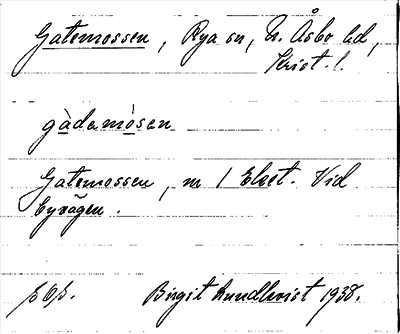 Gatemossen, Rya sn, N. Åsbo hd,
Krist. l.
gàdemòsen
Gatemossen, m 1 Elest. Vid
byvägen.
Birgit Lundkvist 1938.